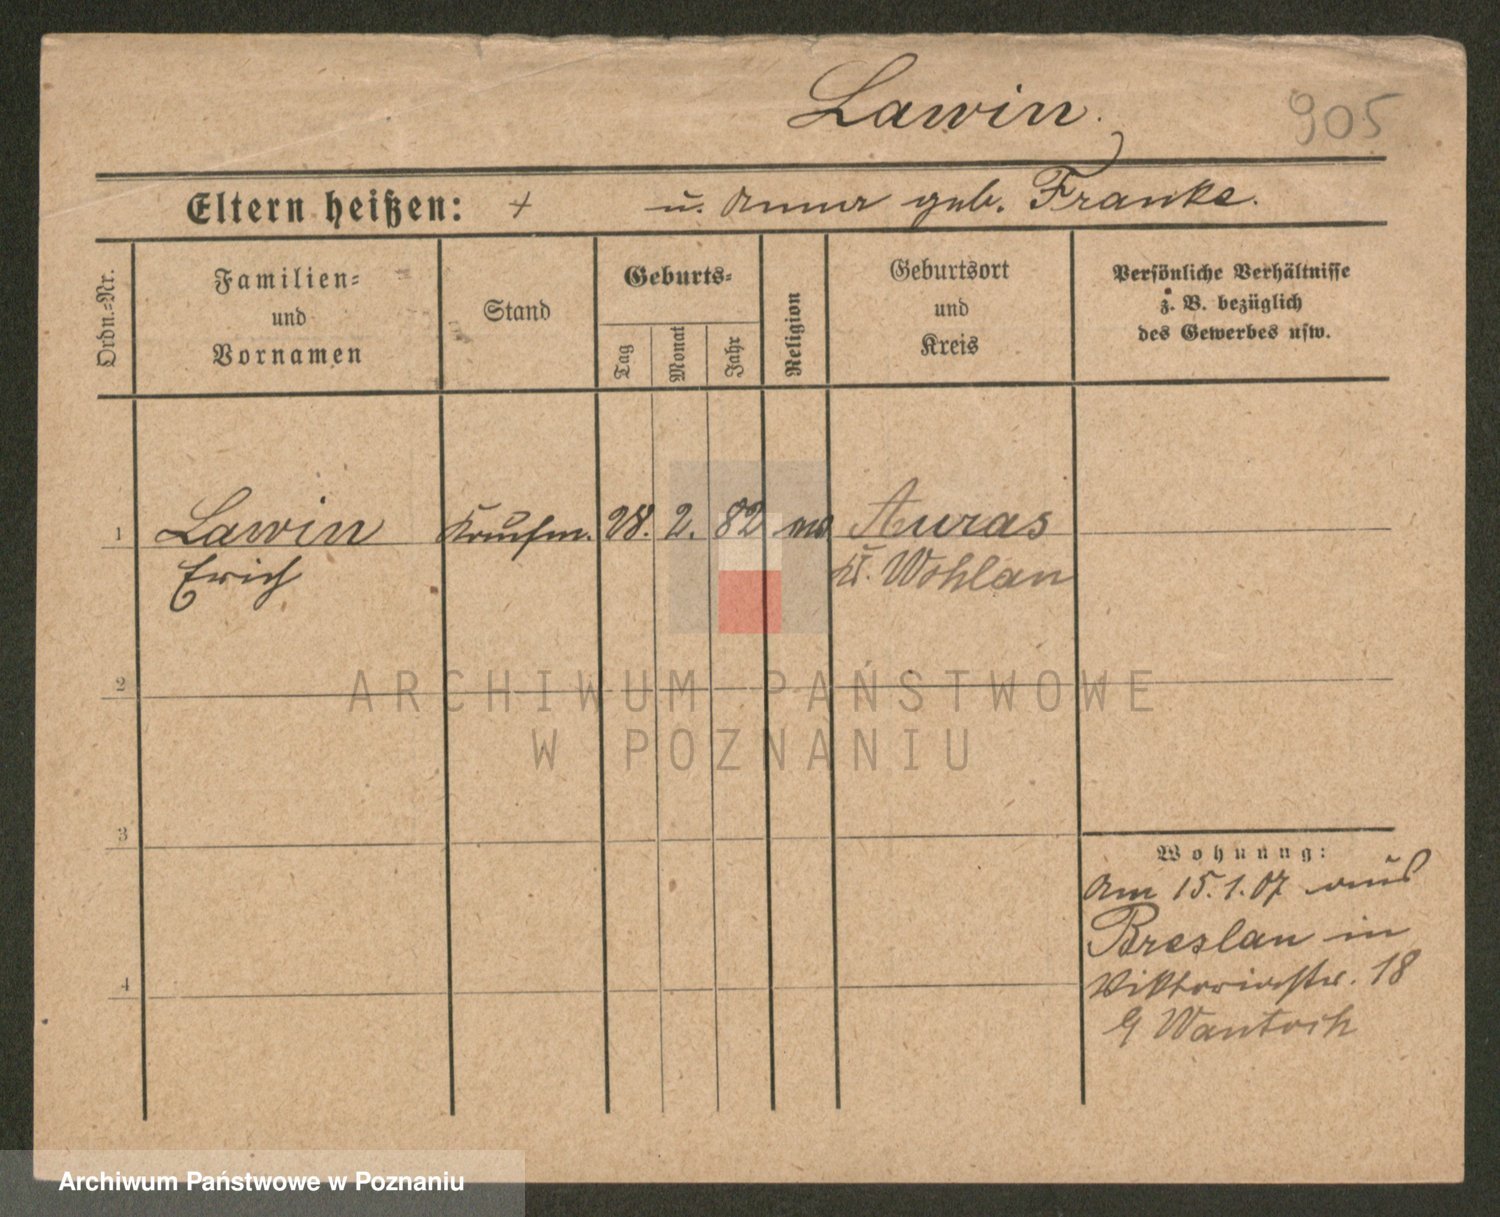 Lawin.
905
Eltern heißen: + u. Anna geb. Franke.
Ordn.-Nr.
Familien-
und
Vornamen
Stand
Geburts-
Tag
Monat
Jahr
Religion
Geburtsort
und
Kreis
Persönliche Verhältnisse
z. B. bezüglich
des Gewerbes usw.
1 Lawin Kaufm. 28. 2. 82 Auras
Erich Kr. Wohlau
2
3
4
Wohnung:
Am 15.1.07 aus
Breslau in
Viktoriastr. 18
Wantoch
ARCHIWUM PAŃSTWOWE
W POZNANIU
Archiwum Państwowe w Poznaniu